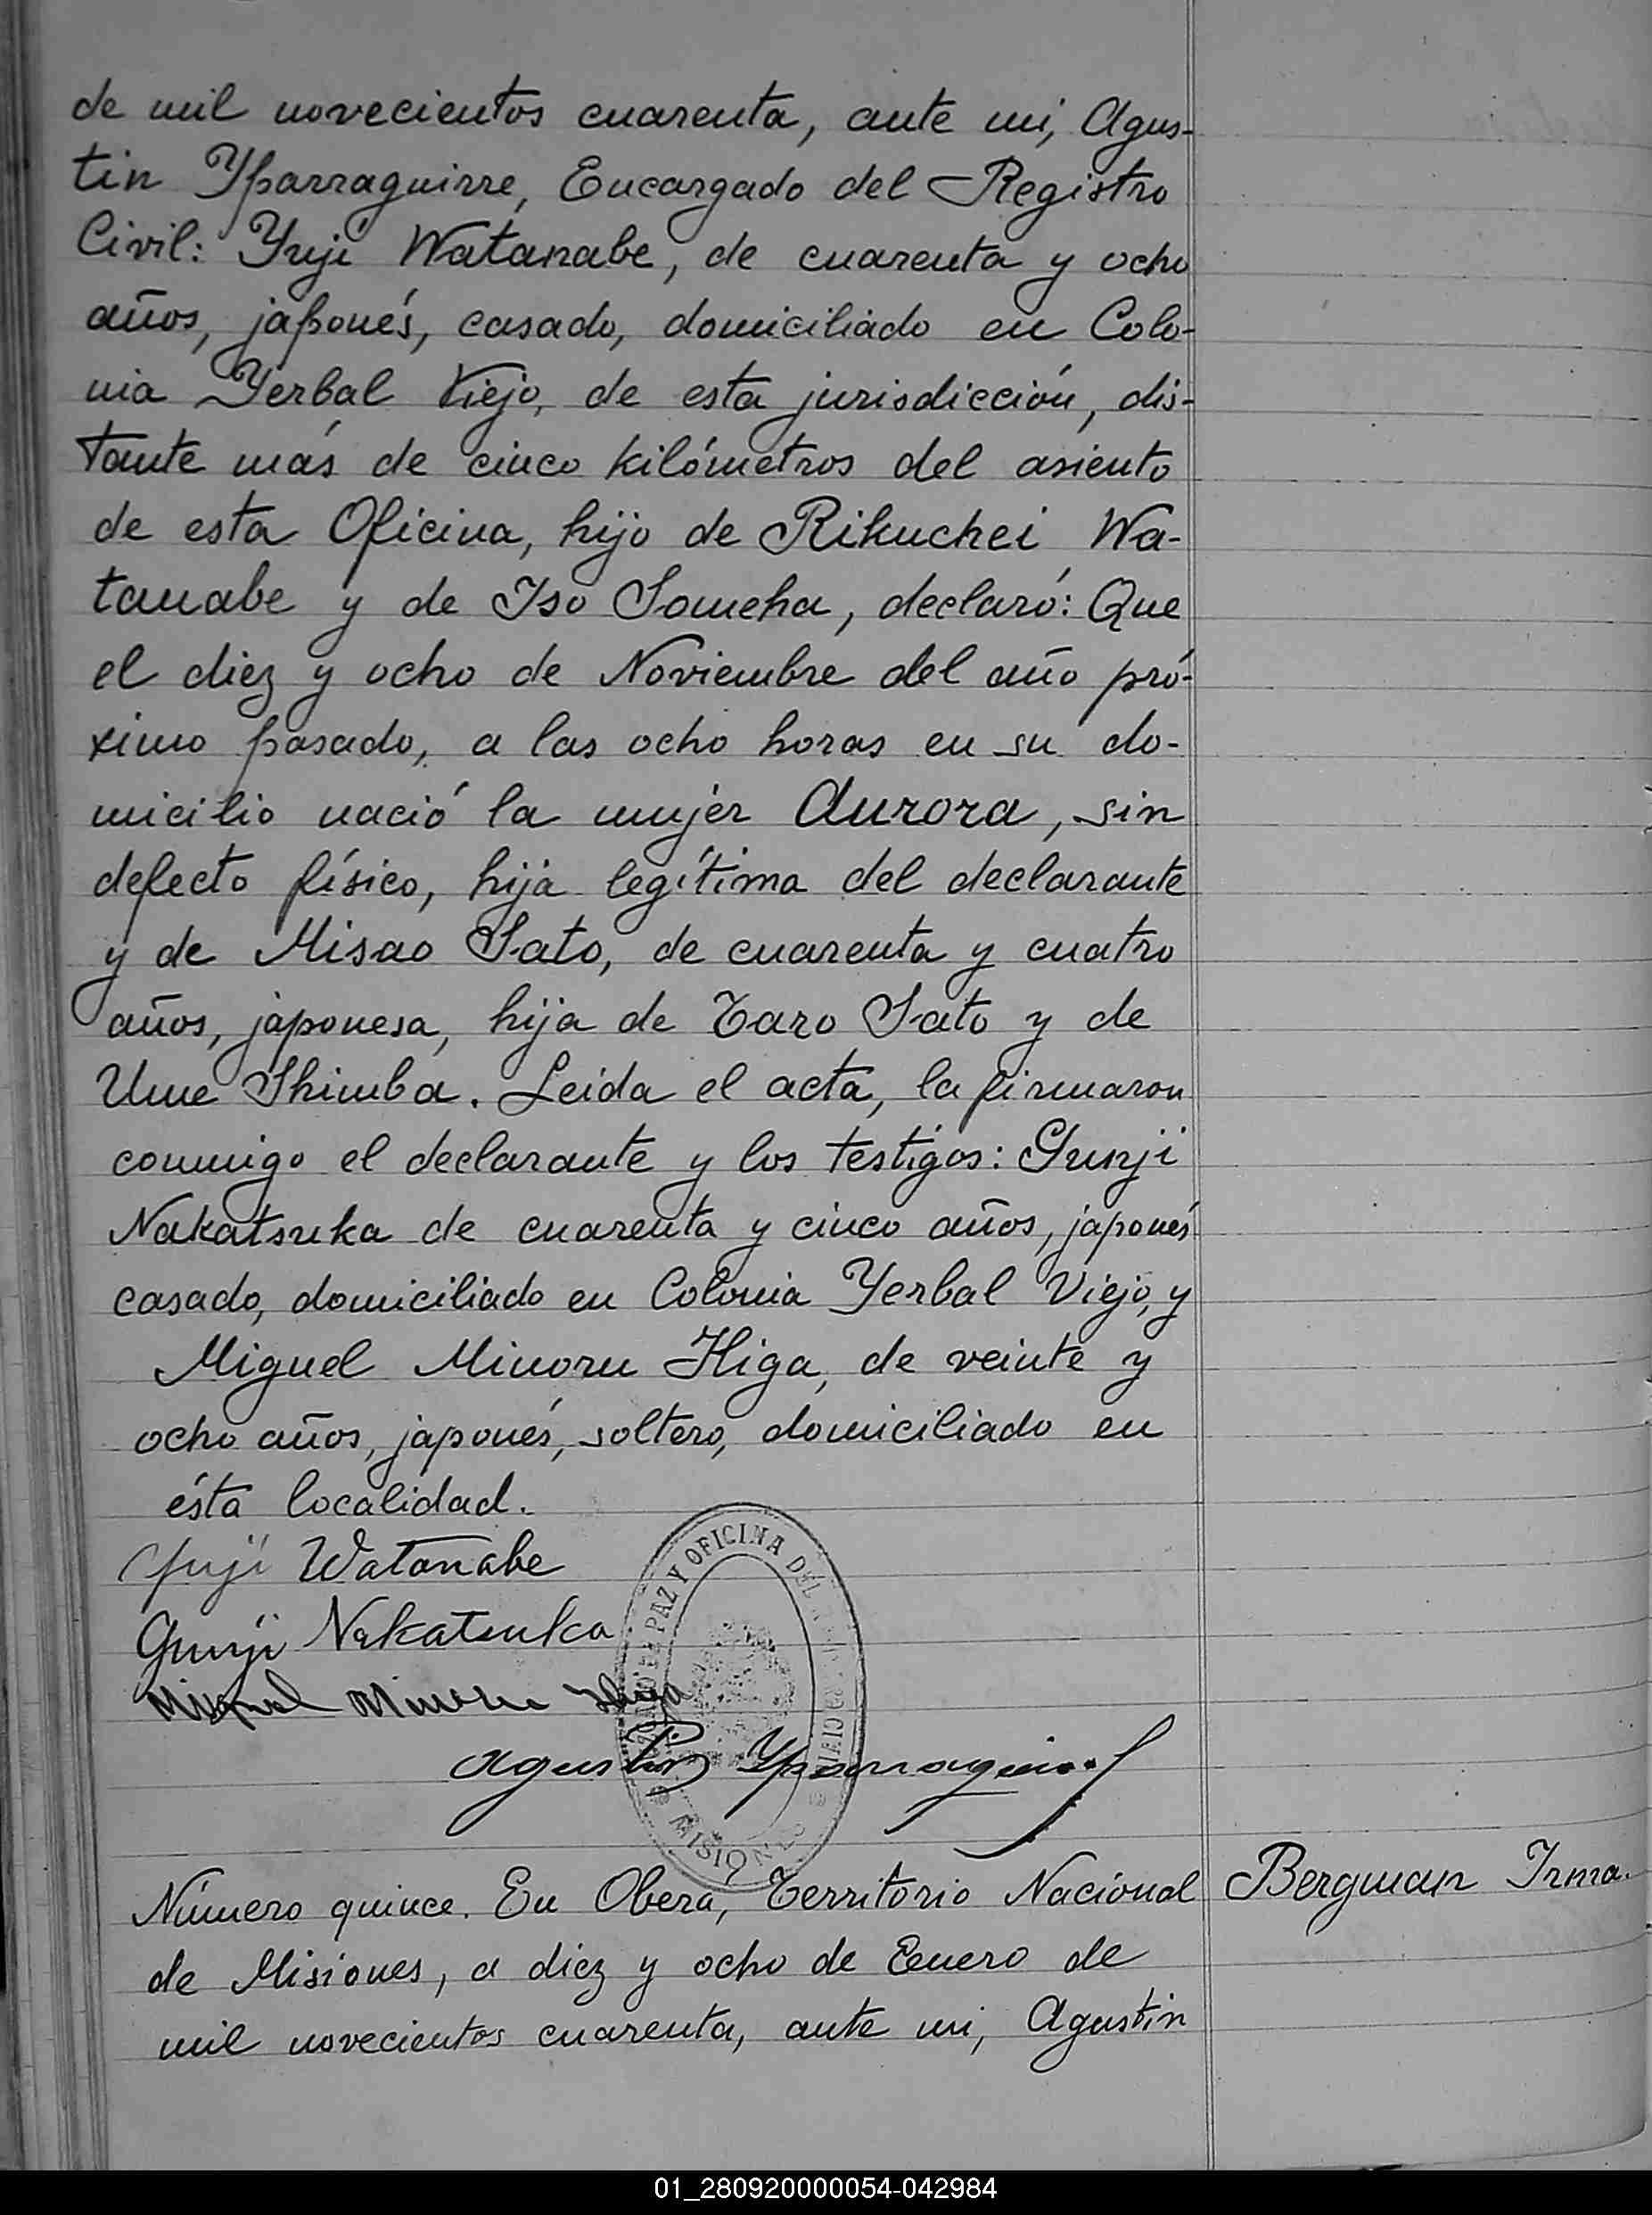 de mil novecientos cuarenta, ante mi, Agus-
tin Yparraguirre, Encargado del Registro
Civil: Yuji Watanabe, de cuarenta y ocho
años, japonés, casado, domiciliado en Colo-
nia Yerbal Viejo, de esta jurisdicción, dis-
tante más de cinco kilómetros del asiento
de esta Oficina, hijo de Rikuchei Wa-
tanabe y de Iso Someha, declaró: Que
el diez y ocho de Noviembre del año pró-
ximo pasado, a las ocho horas en su do-
micilio nació la mujer Aurora, sin
defecto físico, hija legítima del declarante
y de Misao Sato, de cuarenta y cuatro
años, japonesa, hija de Taro Sato y de
Ume Shimba. Leida el acta, la firmaron
conmigo el declarante y los testigos: Gunji
Nakatsuka de cuarenta y cinco años, japonés
casado, domiciliado en Colonia Yerbal Viejo, y
Miguel Minoru Higa, de veinte y
ocho años, japonés, soltero, domiciliado en
ésta localidad.
Yuji Watanabe
Gunji Nakatsuka
Miguel Minoru Higa
Agustin Yparraguirre
PAZ Y OFICINA DEL
MISIONES
Número quince. En Oberá, Territorio Nacional
Bergman Irma.
de Misiones, a diez y ocho de Enero de
mil novecientos cuarenta, ante mi, Agustin
01_280920000054-042984